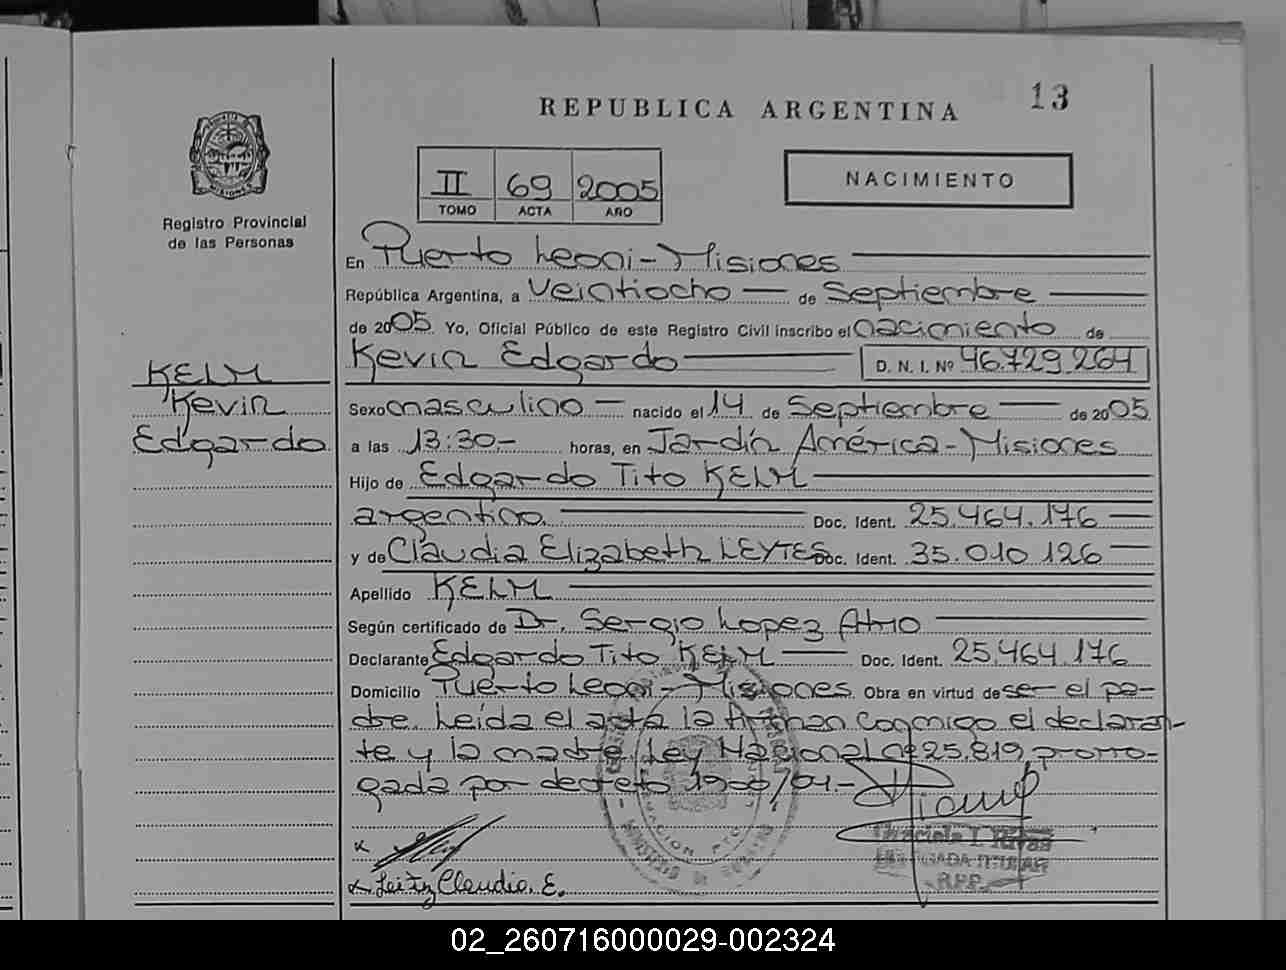 REPUBLICA ARGENTINA
13
Registro Provincial
de las Personas
II 69 2005
TOMO ACTA AÑO
NACIMIENTO
En Puerto Leoni - Misiones
República Argentina, a veintiocho de Septiembre
de 2005 Yo, Oficial Público de este Registro Civil inscribo el nacimiento de
Kevin Edgardo D. N. I. Nº 46.729.264
KELM
Kevin
Edgardo
Sexo masculino nacido el 14 de Septiembre de 2005
a las 13:30.- horas, en Jardín América - Misiones
Hijo de Edgardo Tito KELM
argentino. Doc. Ident. 25.464.176
y de Claudia Elizabeth LEYTES Doc. Ident. 35.010.126
Apellido KELM
Según certificado de Dr. Sergio Lopez
Declarante Edgardo Tito KELM Doc. Ident. 25.464.176
Domicilio Puerto Leoni - Misiones Obra en virtud de ser el pa-
dre. Leída el acta la firman conmigo el declaran-
te y la madre Ley Nacional Nº 25.819 prorro-
gada por decreto 1900/04.-
Graciela I. Rivas
DELEGADA TITULAR
R.P.P.
x
x Leitez Claudia. E.
02_260716000029-002324